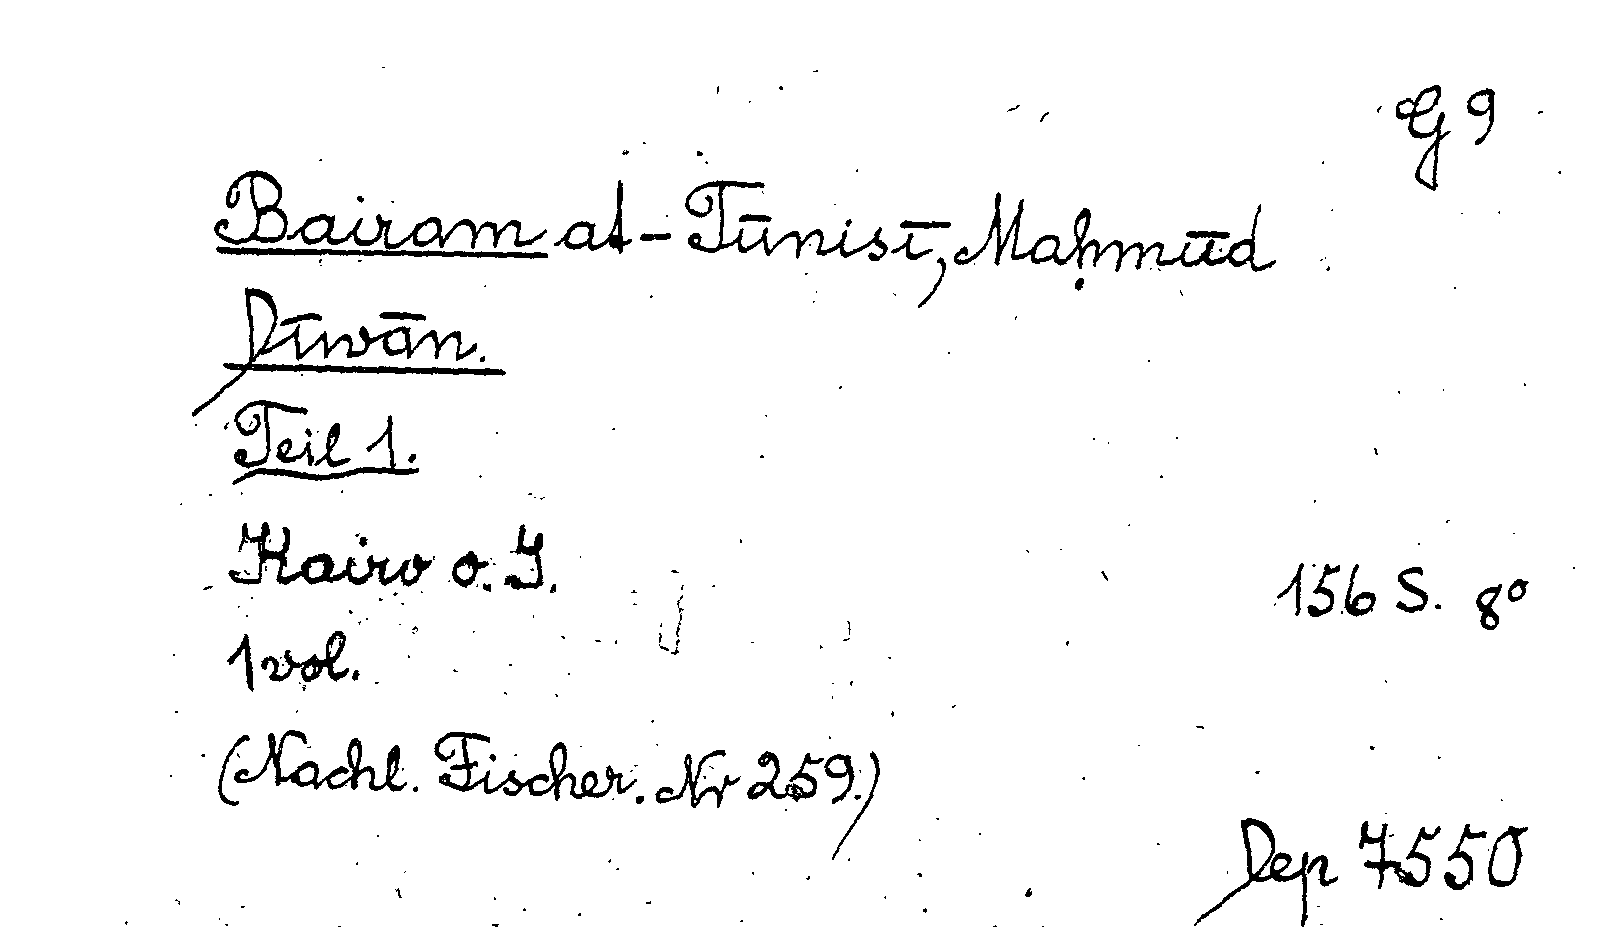 G 9
Bairam at-Tūnisī, Maḥmūd
Dīwān.
Teil 1.
Kairo o. J.
156 S. 8°
1 vol.
(Nachl. Fischer. Nr 259.)
Dep 7550